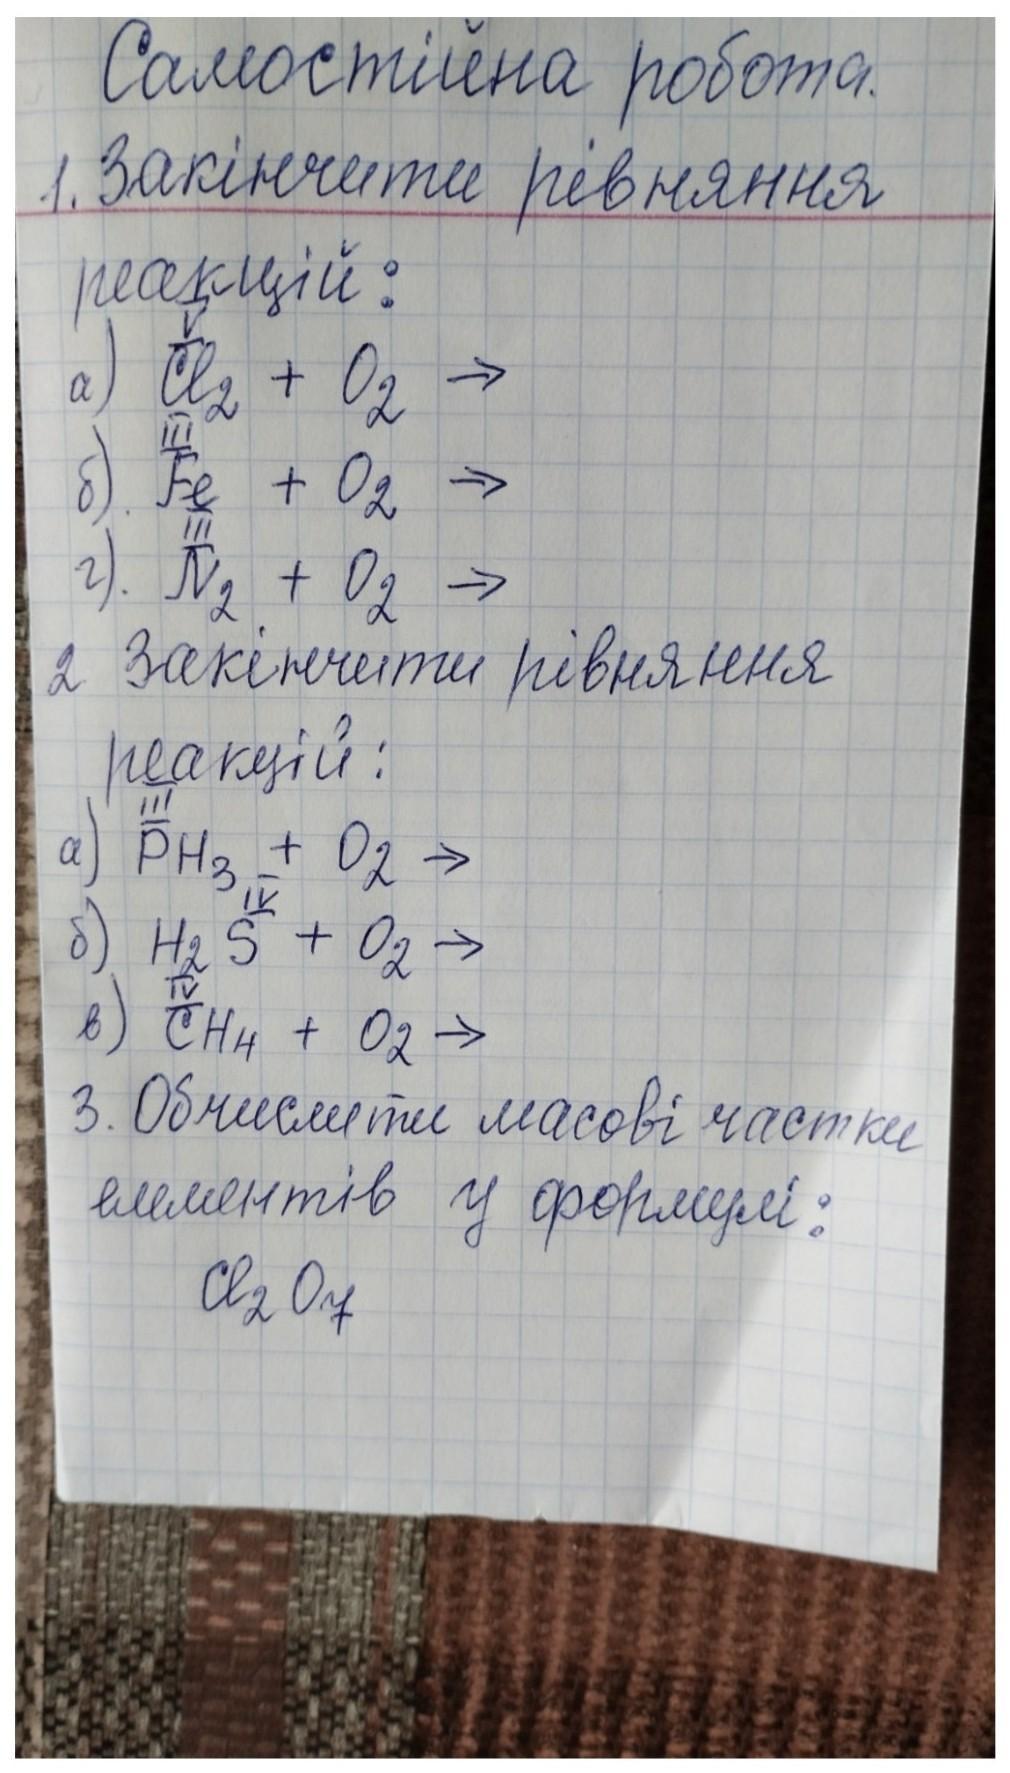 Самостійна робота.
1. Закінчити рівняння
реакцій:
V
а) Cl₂ + O₂ →
III
б). Fe + O₂ →
III
г). N₂ + O₂ →
2 Закінчити рівняння
реакцій:
III
а) PH₃ + O₂ →
IV
б) H₂S + O₂ →
IV
в) CH₄ + O₂ →
3. Обчислити масові частки
елементів у формулі:
Cl₂O₇